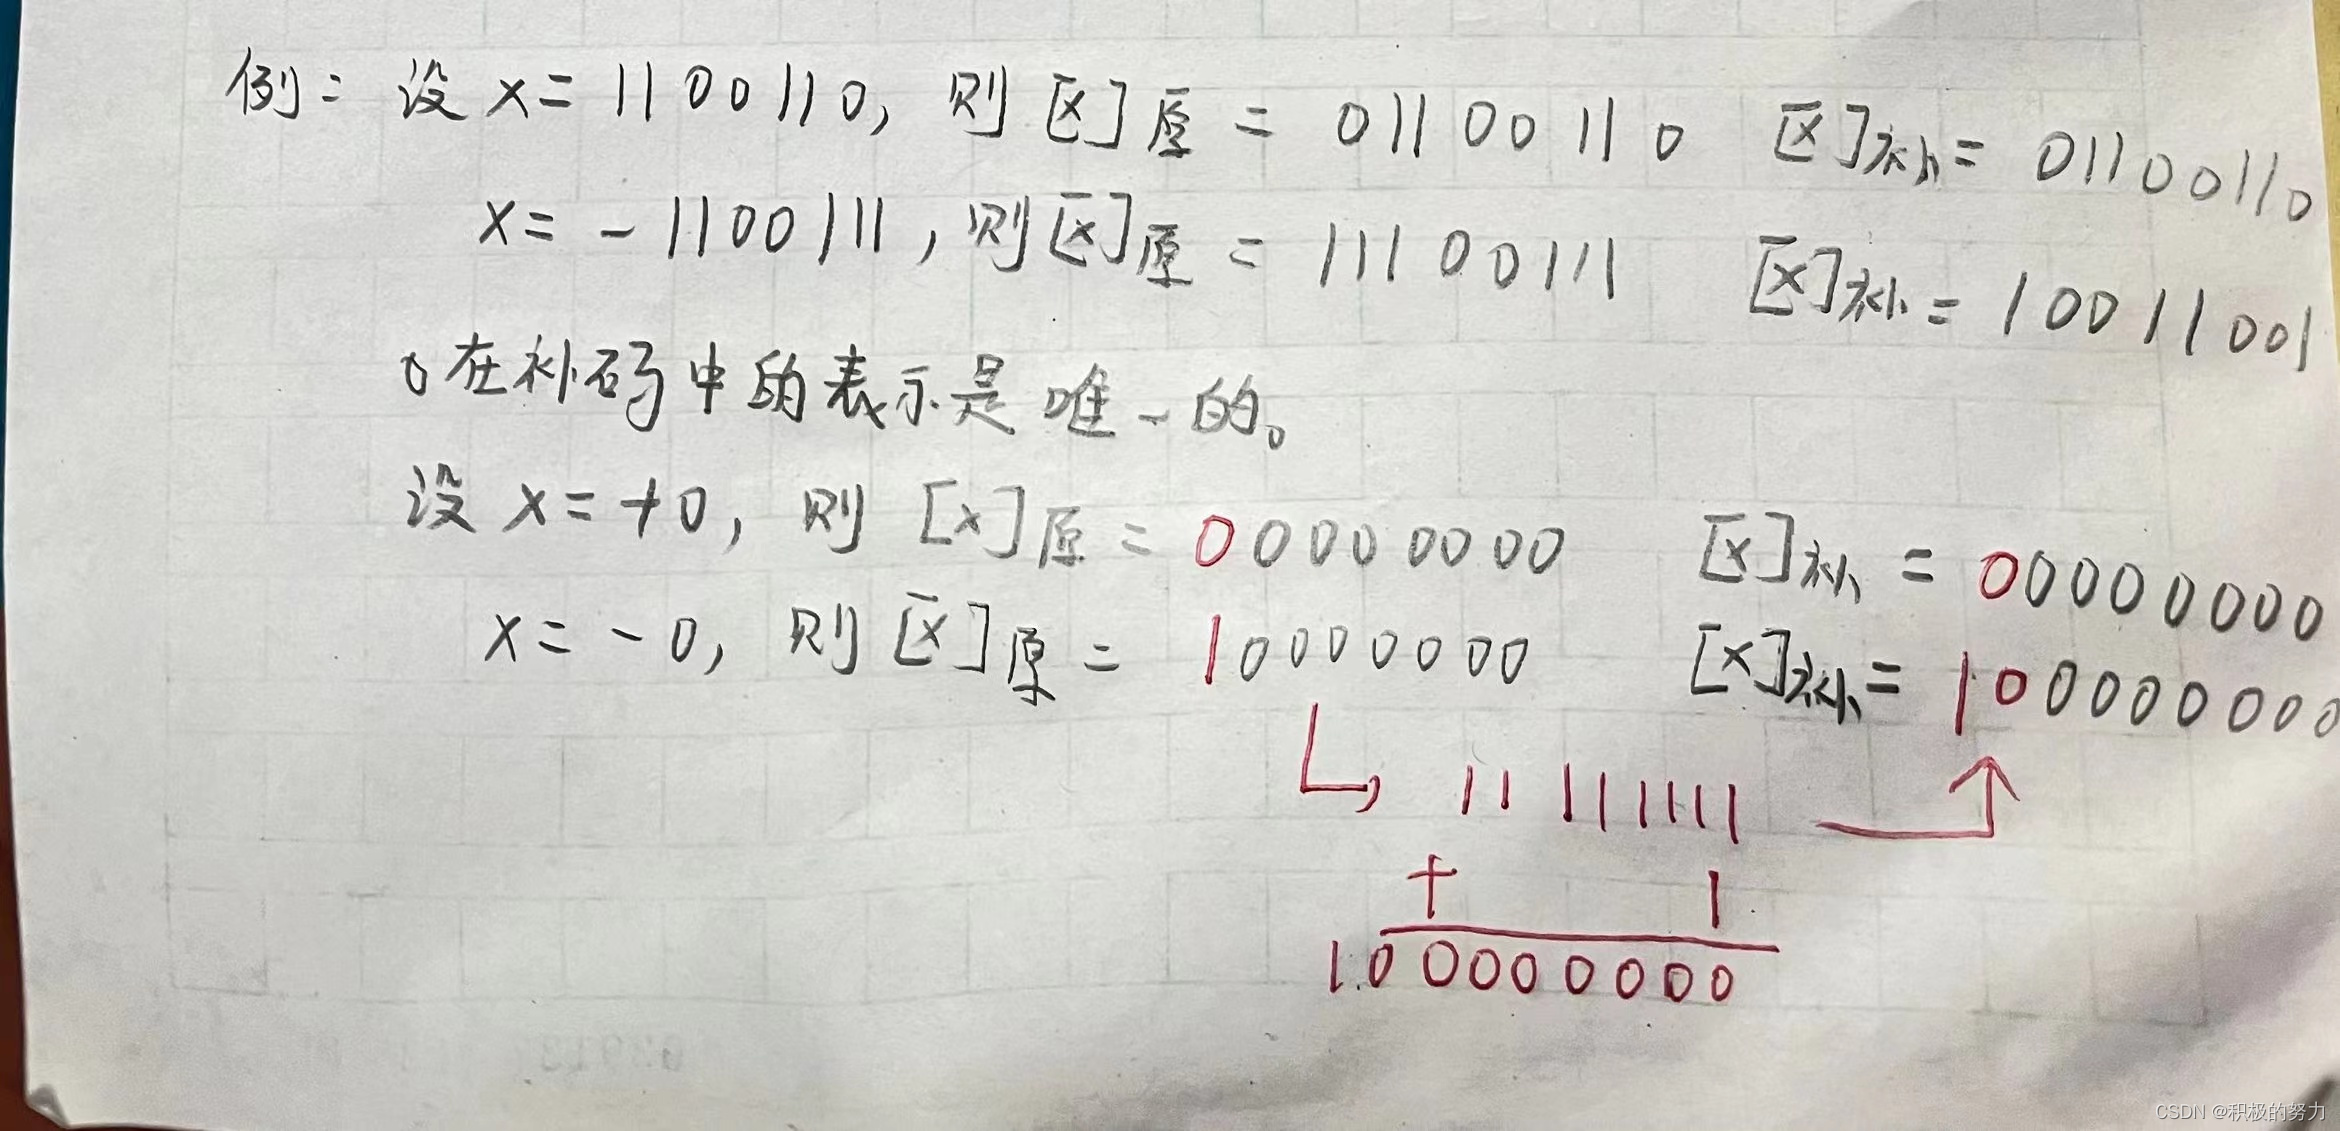 例：设 x = 1100110, 则 [x]原 = 01100110 [x]补 = 01100110
x = -1100111, 则 [x]原 = 11100111 [x]补 = 10011001
0在补码中的表示是唯一的。
设 x = +0, 则 [x]原 = 00000000 [x]补 = 00000000
x = -0, 则 [x]原 = 10000000 [x]补 = 100000000
11111111
+ 1
100000000
CSDN @积极的努力